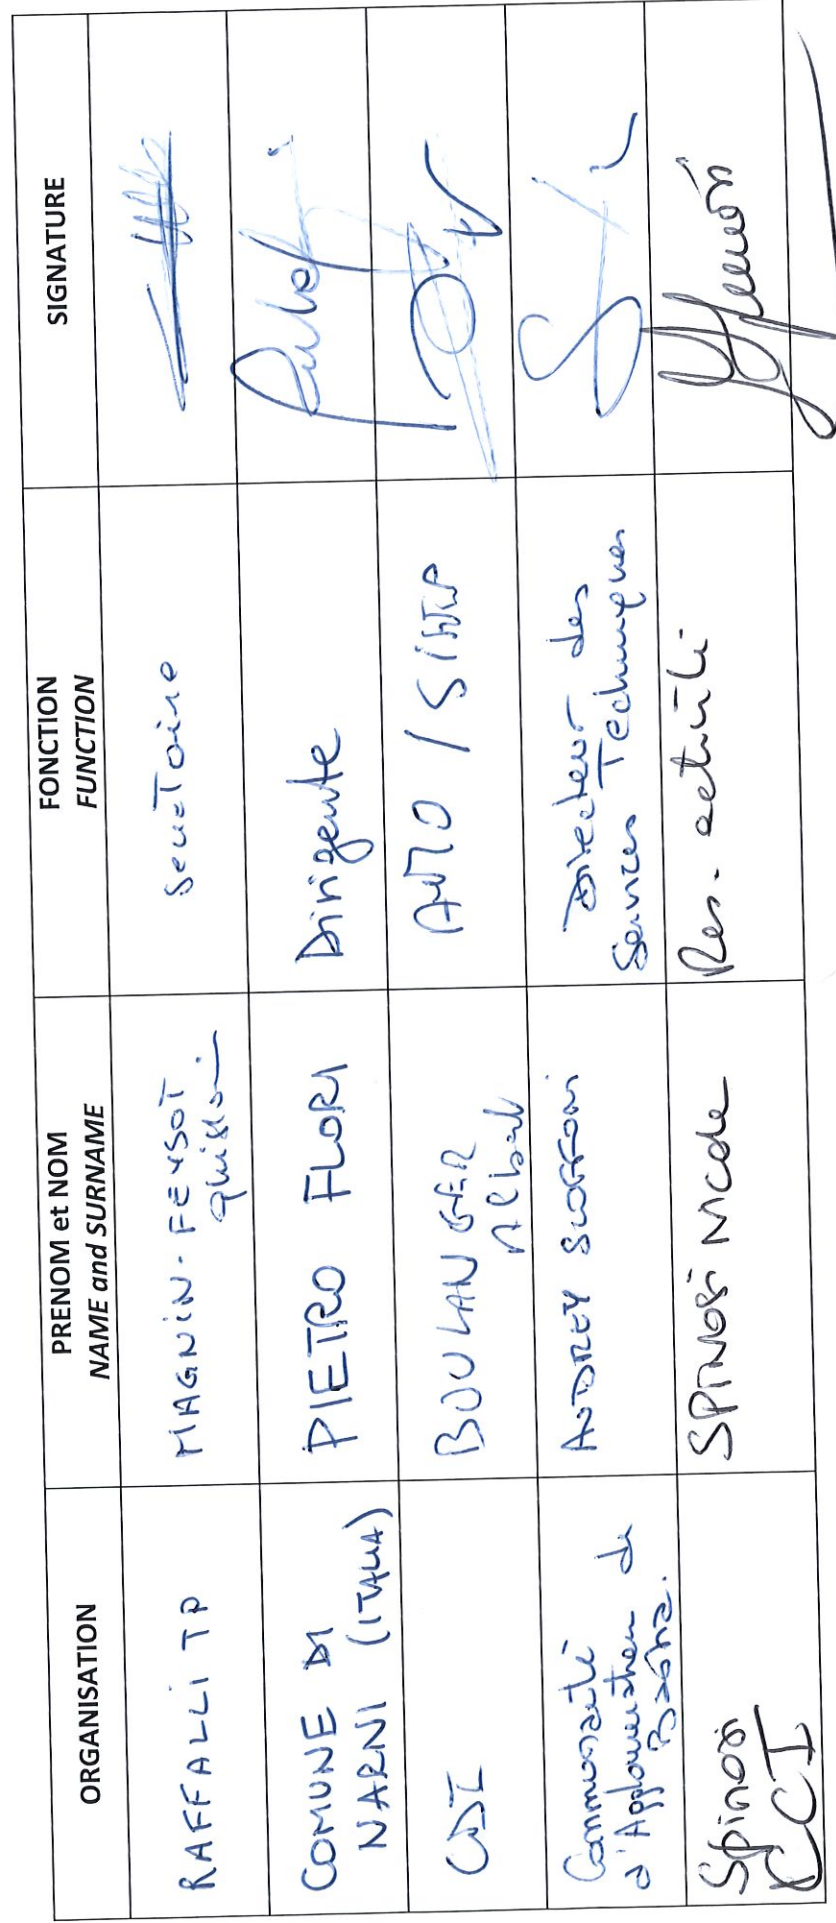 ORGANISATION
PRENOM et NOM
NAME and SURNAME
FONCTION
FUNCTION
SIGNATURE
RAFFALLI TP
MAGNIN-FEYSOT
COMUNE DI
NARNI (ITALIA)
PIETRO FLORI
Dirigente
BOULANGER
Albert
Communauté
d'Agglomération de
Bastia.
AUDREY SCOFFONI
Directeur des
Services Techniques
Spinosi
CCI
SPINOSI Nicole
Res. activité